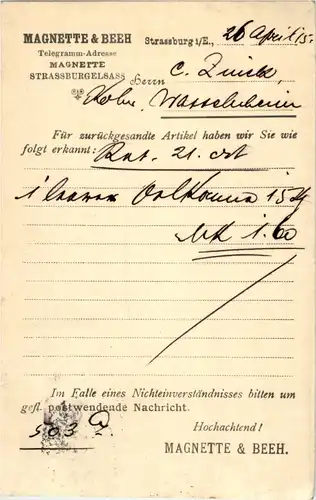 MAGNETTE & BEEH
Telegramm-Adresse
MAGNETTE
STRASSBURGELSASS
Strassburg i/E., 26 April 15.
Herrn C. Zinck,
Wasselnheim
Für zurückgesandte Artikel haben wir Sie wie
folgt erkannt:
21. Oct
1 leeren 15
Mk 1.60
Im Falle eines Nichteinverständnisses bitten um
gefl. postwendende Nachricht.
Hochachtend!
503
MAGNETTE & BEEH.